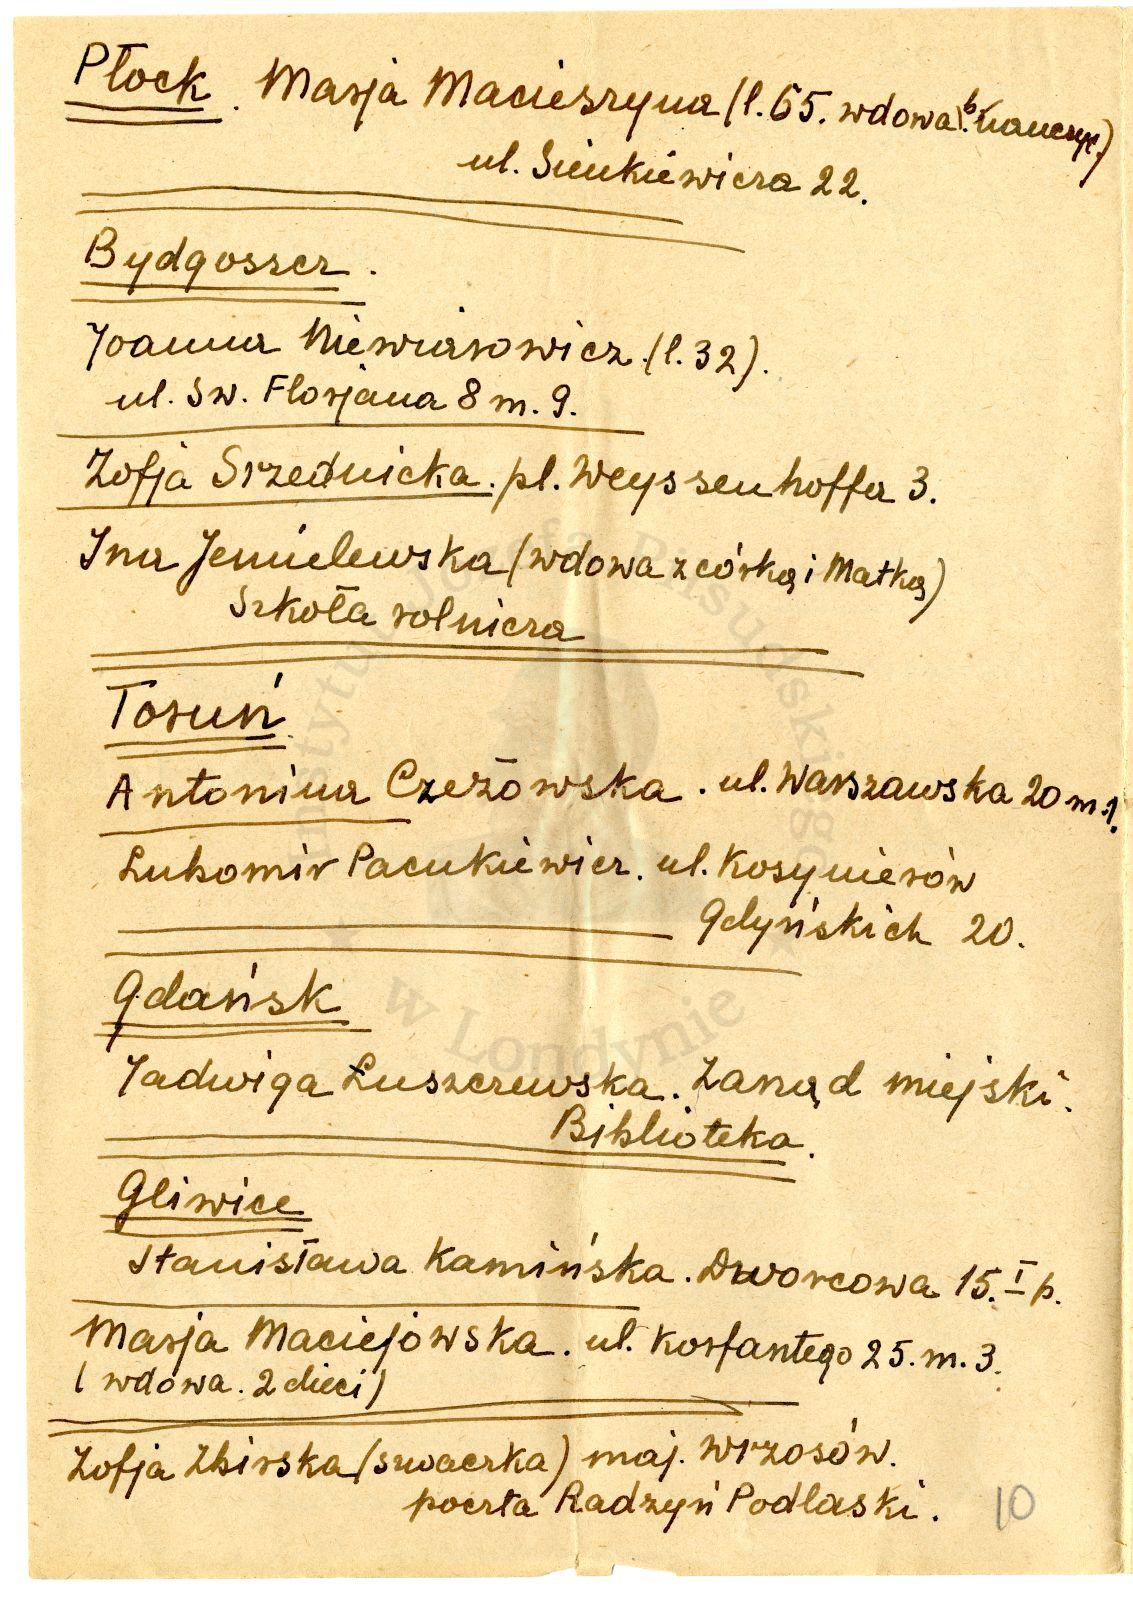 Płock. Marja Macieszyna (l. 65. wdowa b. nauczyc.)
ul. Sienkiewicza 22.
Bydgoszcz.
Joanna Niewiarowicz. (l. 32).
ul. Sw. Florjana 8 m. 9.
Zofja Srzednicka. pl. Weyssenhoffa 3.
Ina Jemielewska (wdowa z córką i Matką)
Szkoła rolnicza
Toruń
Antonina Czeżowska. ul. Warszawska 20 m 1.
Luhomir Pacukiewicz. ul. Kosynierów
Gdyńskich 20.
Gdańsk
Jadwiga Łuszczewska. Zarząd miejski.
Biblioteka.
Gliwice
Stanisława Kamińska. Dworcowa 15. I p.
Marja Maciejowska. ul. Korfantego 25. m. 3.
(wdowa. 2 dzieci)
Zofja Zbirska (szwaczka) maj. Wrzosów.
poczta Radzyń Podlaski.
10
Instytut Józefa Piłsudskiego
w Londynie